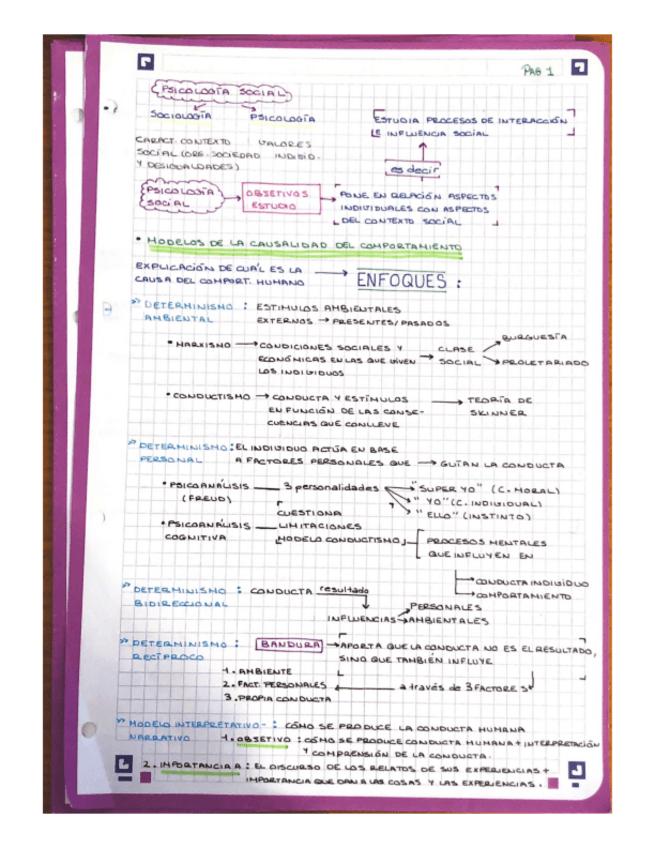 PAG 1
PSICOLOGÍA SOCIAL
SOCIOLOGÍA PSICOLOGÍA
ESTUDIA PROCESOS DE INTERACCIÓN
E INFLUENCIA SOCIAL
CARACT. CONTEXTO VALORES
SOCIAL (ORG. SOCIEDAD INDIVID.
Y DESIGUALDADES)
es decir
PSICOLOGÍA
SOCIAL
OBJETIVOS
ESTUDIO
PONE EN RELACIÓN ASPECTOS
INDIVIDUALES CON ASPECTOS
DEL CONTEXTO SOCIAL
• MODELOS DE LA CAUSALIDAD DEL COMPORTAMIENTO
EXPLICACIÓN DE CUÁL ES LA
CAUSA DEL COMPORT. HUMANO
→ ENFOQUES :
» DETERMINISMO : ESTIMULOS AMBIENTALES
AMBIENTAL EXTERNOS → PRESENTES/PASADOS
• MARXISMO → CONDICIONES SOCIALES Y
ECONÓMICAS EN LAS QUE VIVEN
LOS INDIVIDUOS
→ CLASE
SOCIAL
BURGUESÍA
PROLETARIADO
• CONDUCTISMO → CONDUCTA Y ESTÍMULOS
EN FUNCIÓN DE LAS CONSE-
CUENCIAS QUE CONLLEVE
→ TEORÍA DE
SKINNER
» DETERMINISMO : EL INDIVIDUO ACTÚA EN BASE
PERSONAL A FACTORES PERSONALES QUE → GUÍAN LA CONDUCTA
• PSICOANÁLISIS 3 personalidades
(FREUD)
"SUPER YO" (C. MORAL)
"YO" (C. INDIVIDUAL)
"ELLO" (INSTINTO)
• PSICOANÁLISIS
COGNITIVA
CUESTIONA
LIMITACIONES
MODELO CONDUCTISMO
PROCESOS MENTALES
QUE INFLUYEN EN
→ CONDUCTA INDIVIDUO
→ COMPORTAMIENTO
» DETERMINISMO : CONDUCTA resultado
BIDIRECCIONAL
INFLUENCIAS
PERSONALES
AMBIENTALES
» DETERMINISMO : BANDURA → APORTA QUE LA CONDUCTA NO ES EL RESULTADO,
RECÍPROCO SINO QUE TAMBIÉN INFLUYE
1. AMBIENTE
2. FACT. PERSONALES ← a través de 3 FACTORES
3. PROPIA CONDUCTA
» MODELO INTERPRETATIVO - : CÓMO SE PRODUCE LA CONDUCTA HUMANA
NARRATIVO 1. OBJETIVO : CÓMO SE PRODUCE CONDUCTA HUMANA + INTERPRETACIÓN
Y COMPRENSIÓN DE LA CONDUCTA.
2. IMPORTANCIA A : EL DISCURSO DE LOS RELATOS DE SUS EXPERIENCIAS +
IMPORTANCIA QUE DAN A LAS COSAS Y LAS EXPERIENCIAS.